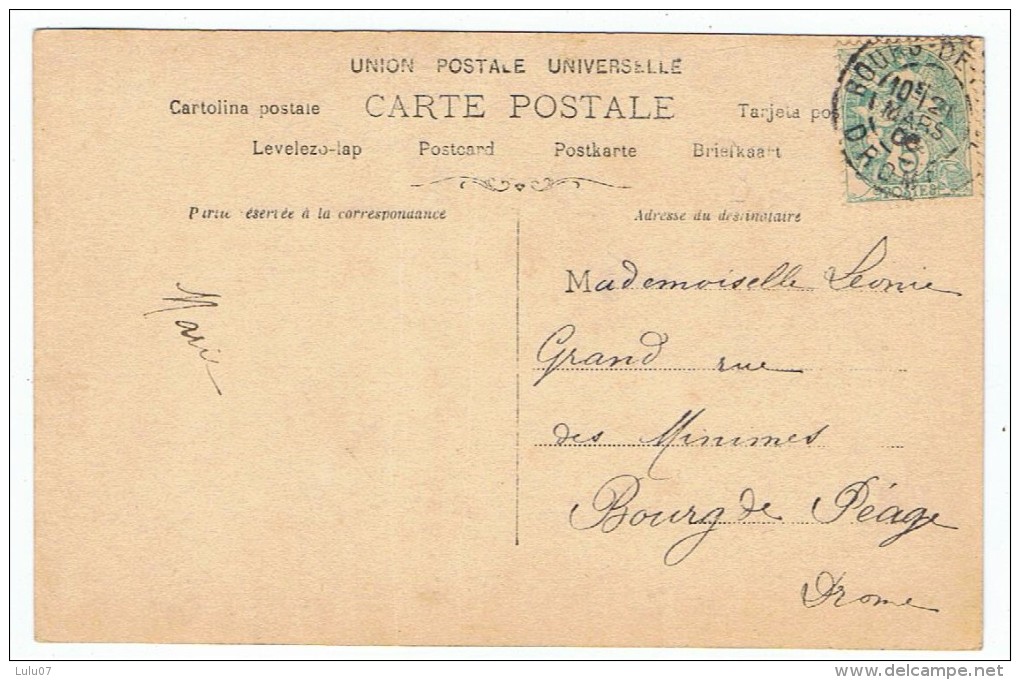 UNION POSTALE UNIVERSELLE
Cartolina postale CARTE POSTALE Tarjeta pos
Levelezo-lap Postcard Postkarte Briefkaart
Partie réservée à la correspondance
Adresse du destinataire
BOURG-DE-
10
MARS
DROME
POSTES
Marie
Mademoiselle Leonie
Grand rue
des Minimes
Bourg de Péage
Drome
Lulu07
www.delcampe.net